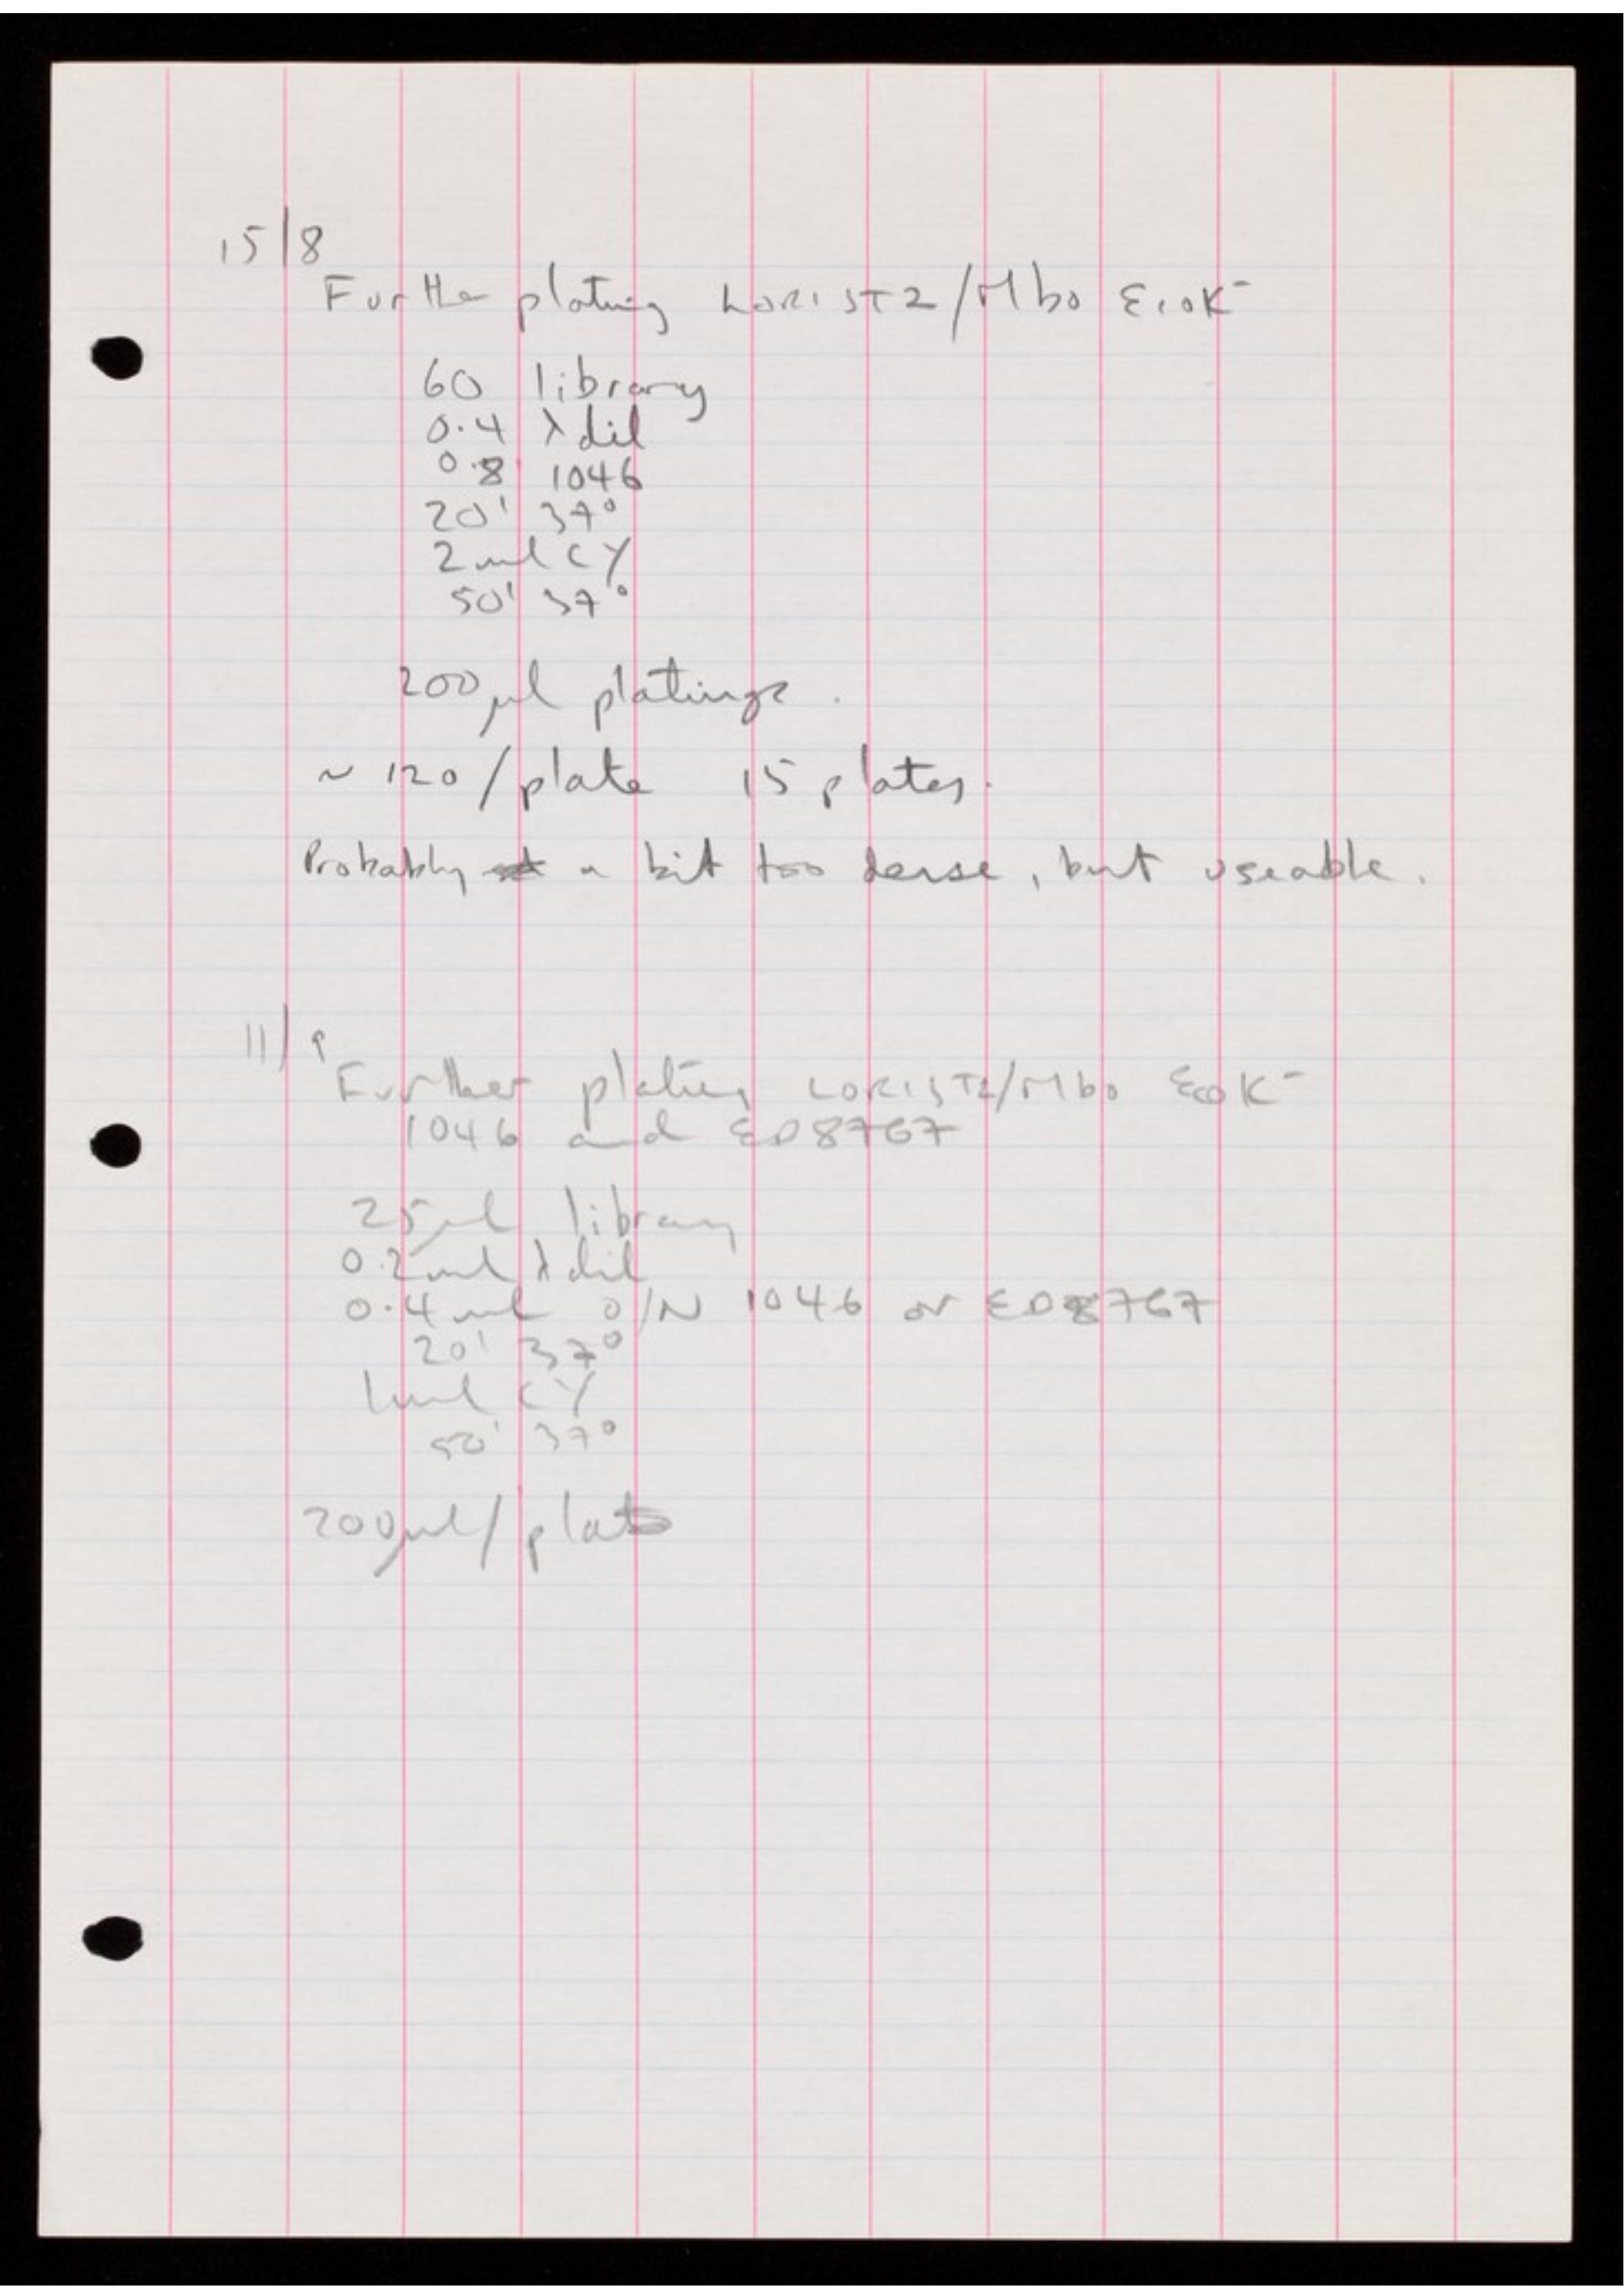 15/8
Further plating LORIST2/Mbo EcoK⁻
60 library
0.4 λ dil
0.8 1046
20' 37°
2 ml CY
50' 37°
200 μl platings.
~ 120/plate 15 plates.
Probably a bit too dense, but useable.
11/9
Further plating LORIST2/Mbo EcoK⁻
1046 and ED8767
25 μl library
0.2 ml λ dil
0.4 ml O/N 1046 or ED8767
20' 37°
1 ml CY
50' 37°
200 μl/plate